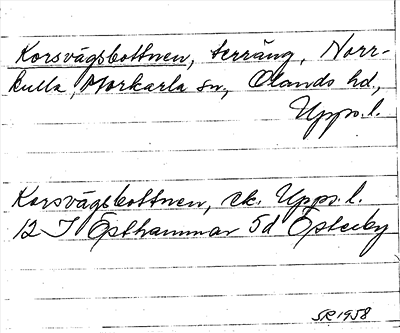 Korsvägsbottnen, terräng, Norr-
kulla, Morkarla sn, Olands hd.,
Upps. l.
Korsvägsbottnen, ek. Upps. l.
12 I Östhammar 5d Österby
SR 1958